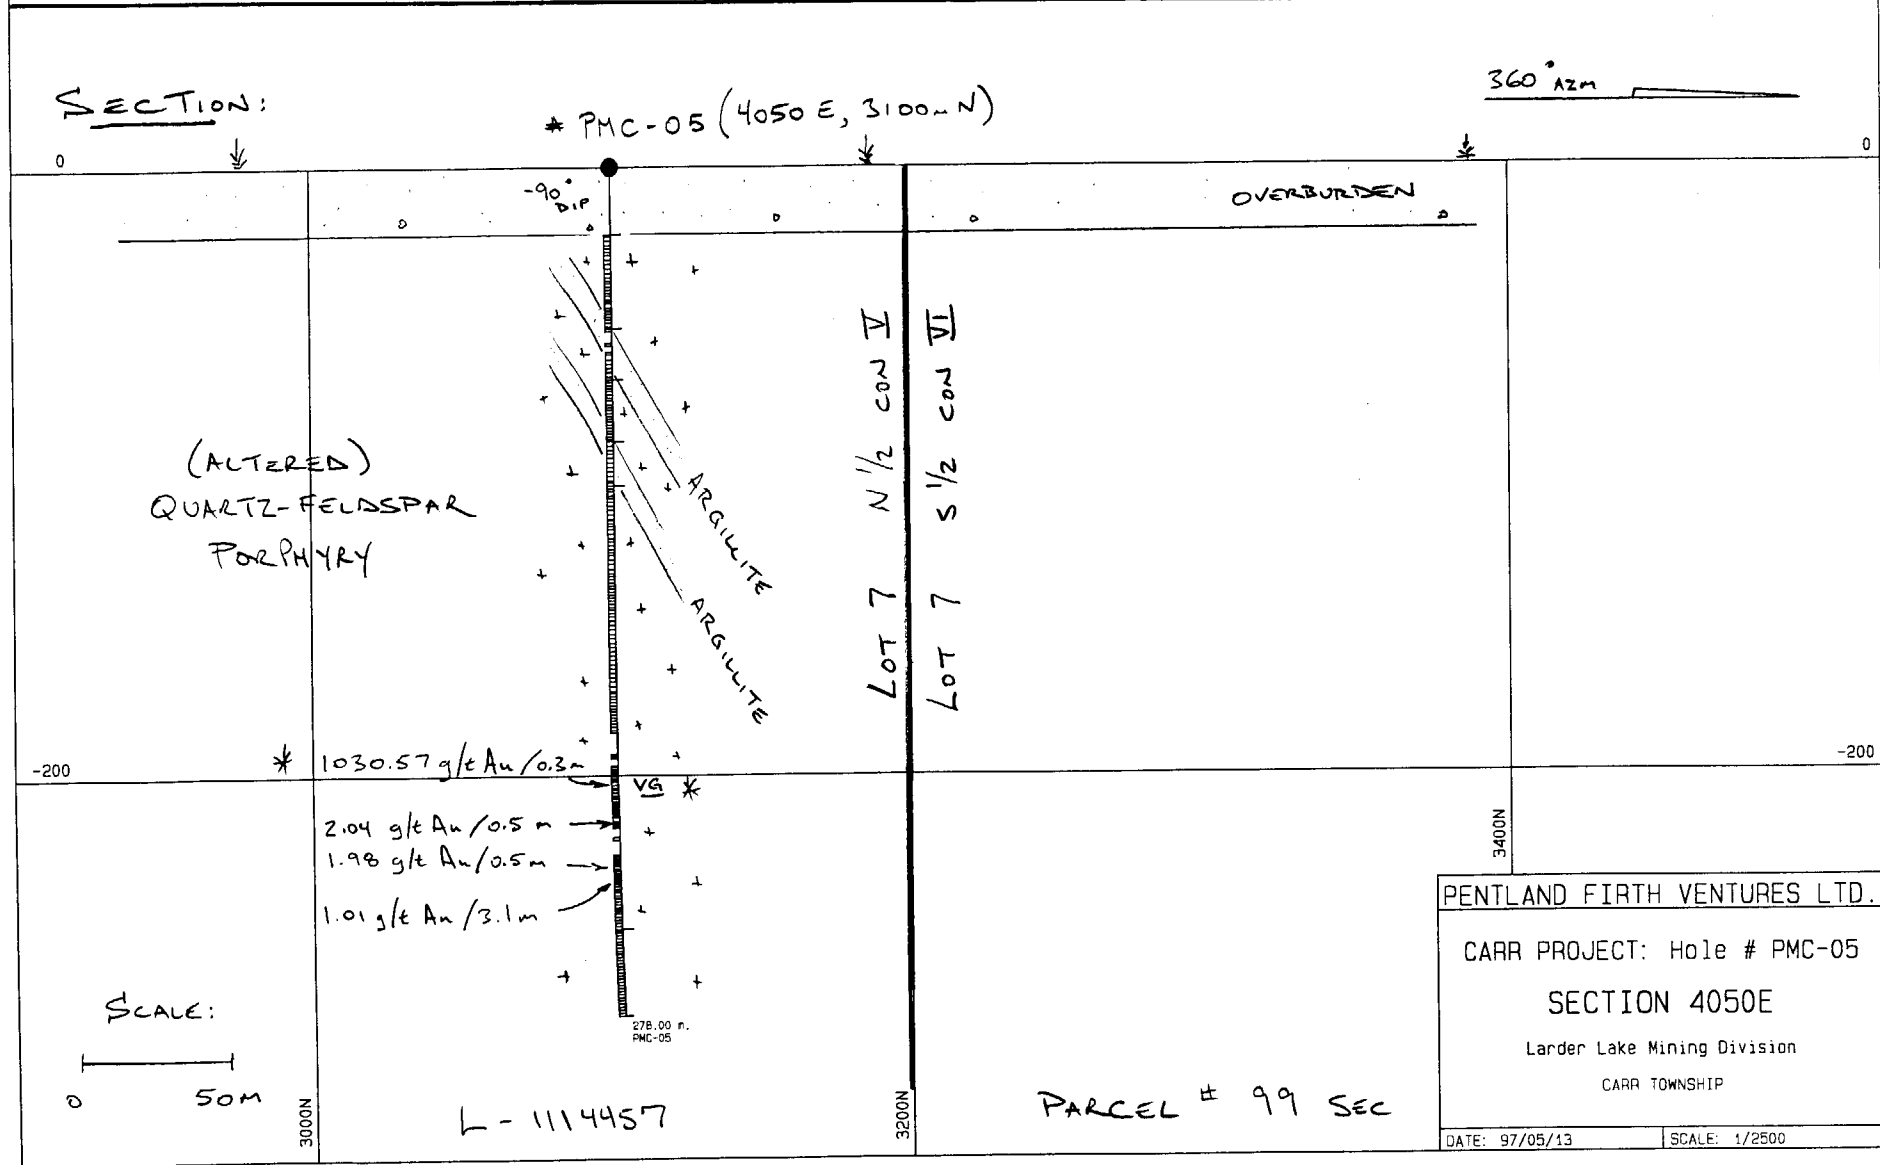 SECTION:
* PMC-05 (4050 E, 3100m N)
360° AZM
0
0
-90°
DIP
OVERBURDEN
LOT 7 N 1/2 CON V
LOT 7 S 1/2 CON VI
(ALTERED)
QUARTZ-FELDSPAR
PORPHYRY
ARGILLITE
ARGILLITE
-200
* 1030.57 g/t Au/0.3m
VG *
-200
2.04 g/t Au/0.5 m
1.98 g/t Au/0.5m
1.01 g/t Au/3.1m
3400N
278.00 m.
PMC-05
SCALE:
0 50M
3000N
L-1114457
3200N
PARCEL # 99 SEC
PENTLAND FIRTH VENTURES LTD.
CARR PROJECT: Hole # PMC-05
SECTION 4050E
Larder Lake Mining Division
CARR TOWNSHIP
DATE: 97/05/13 SCALE: 1/2500